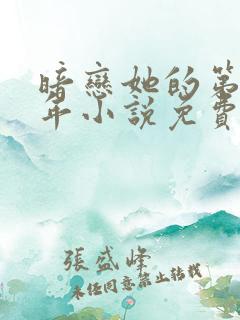 暗戀她的第
年小說免費
張盛峰
未经同意禁止转载